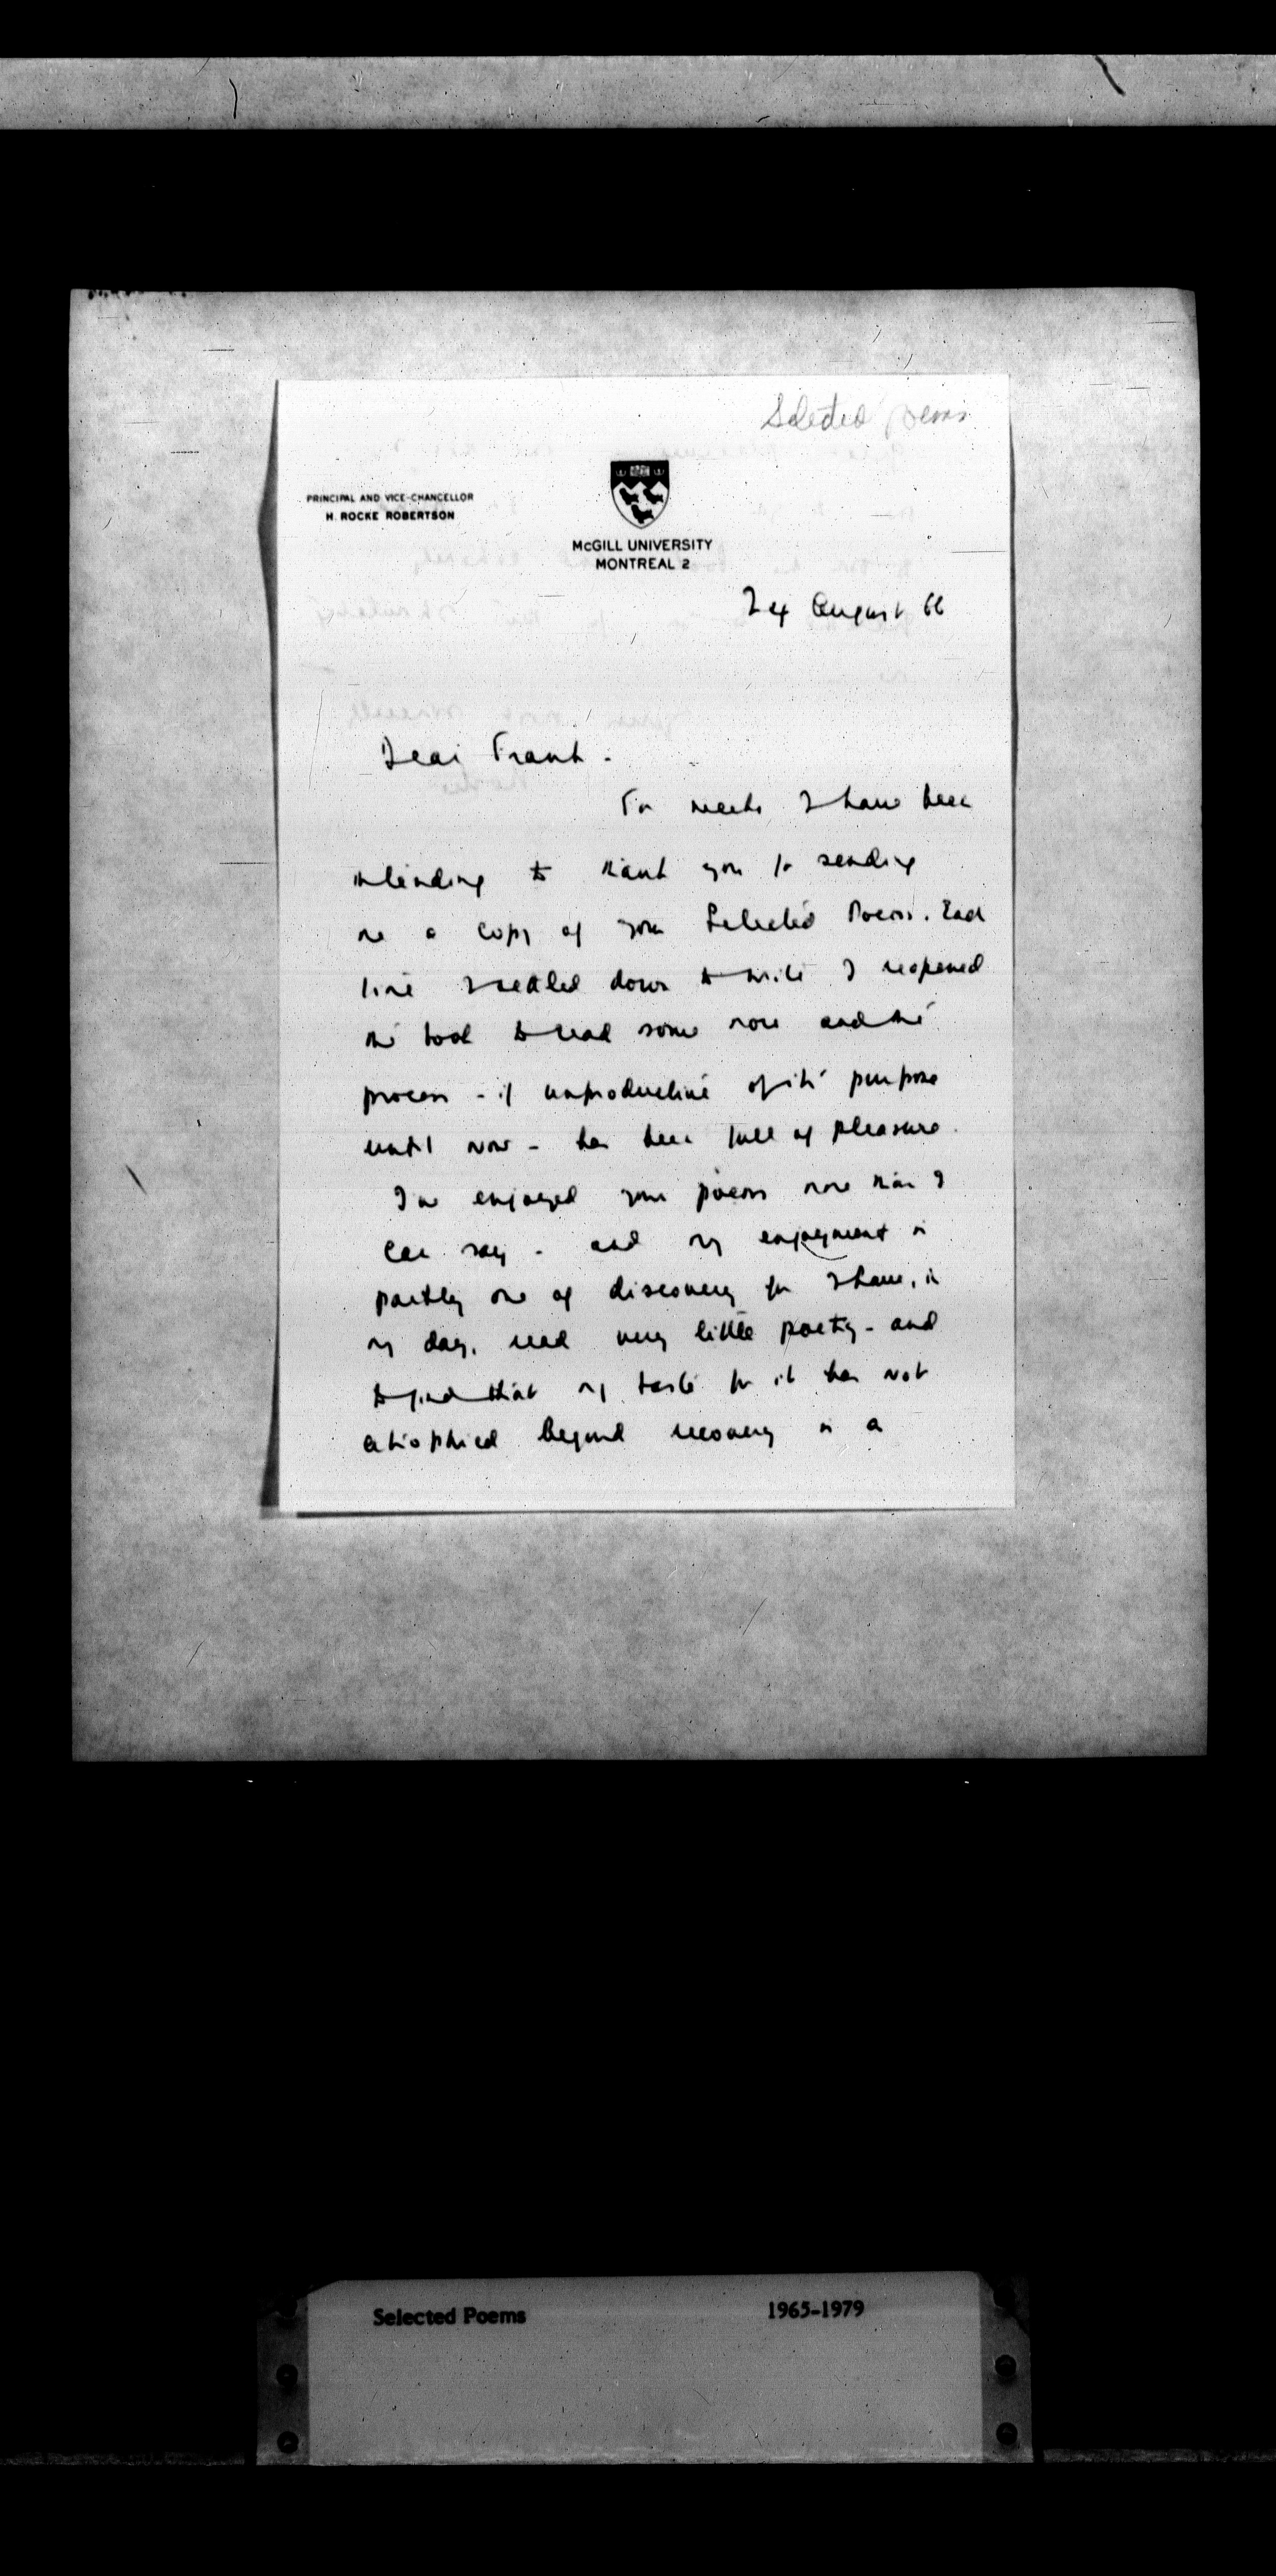 Selected poems
PRINCIPAL AND VICE-CHANCELLOR
H. ROCKE ROBERTSON
McGILL UNIVERSITY
MONTREAL 2
24 August 66
Dear Frank -
For weeks I have been
intending to thank you for sending
me a copy of your Selected Poems. Each
time I settled down to write I reopened
the book to read some more and the
process - if unproductive of its purpose
until now - has been full of pleasure.
I've enjoyed your poems more than I
can say - and my enjoyment is
partly one of discovery for I have, in
my day, read very little poetry - and
to find that my taste for it has not
atrophied beyond recovery is a
Selected Poems 1965-1979